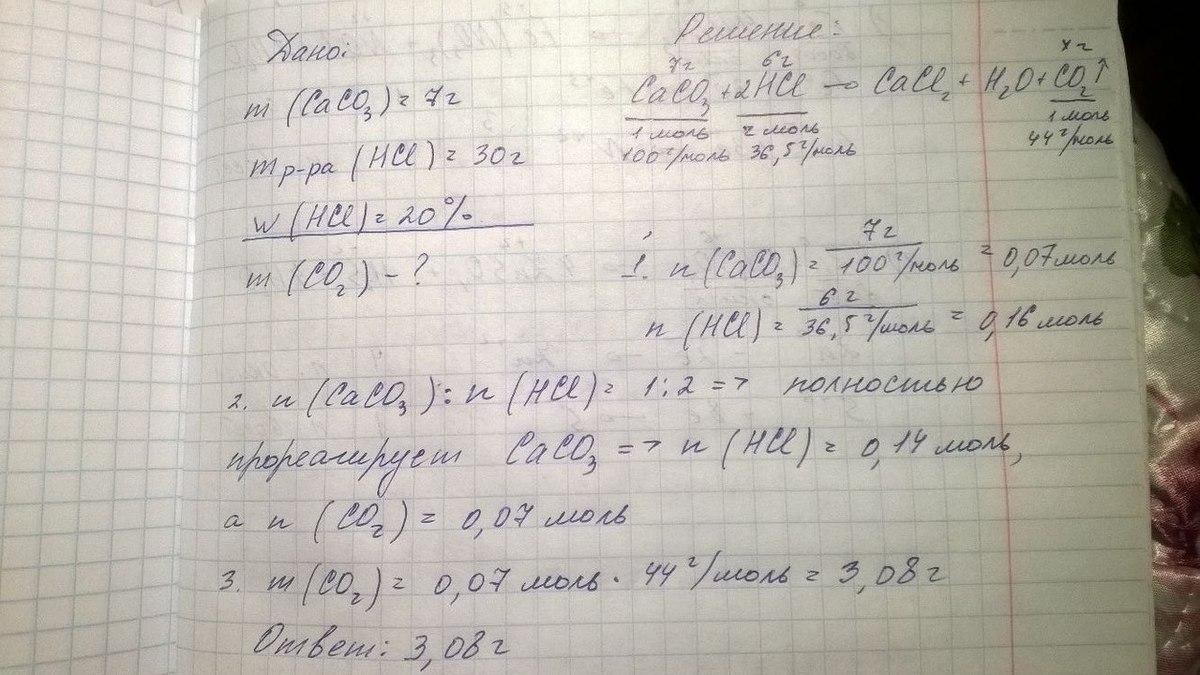 Дано:
m (CaCO₃) = 7г
m р-ра (HCl) = 30г
w (HCl) = 20%
m (CO₂) - ?
Решение:
7г 6г x г
CaCO₃ + 2HCl → CaCl₂ + H₂O + CO₂↑
1 моль 2 моль 1 моль
100 г/моль 36,5 г/моль 44 г/моль
1. n (CaCO₃) = 7г / 100 г/моль = 0,07 моль
n (HCl) = 6 г / 36,5 г/моль = 0,16 моль
2. n (CaCO₃) : n (HCl) = 1:2 => полностью
прореагирует CaCO₃ => n (HCl) = 0,14 моль,
а n (CO₂) = 0,07 моль
3. m (CO₂) = 0,07 моль · 44 г/моль = 3,08 г
Ответ: 3,08 г